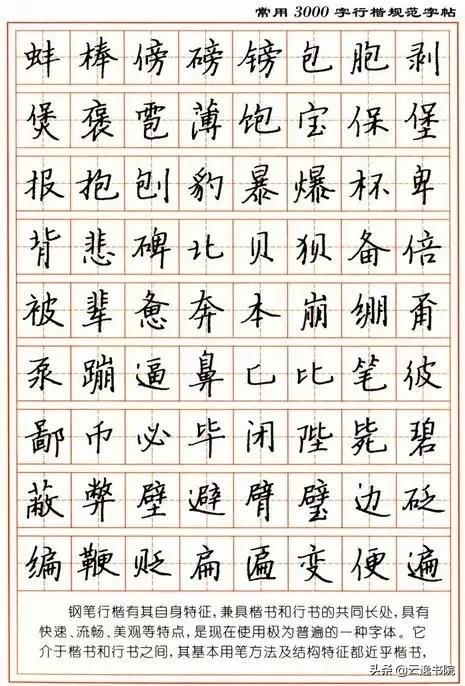 常用3000字行楷规范字帖
蚌棒傍磅镑包胞剥
煲褒雹薄饱宝保堡
报抱刨豹暴爆杯卑
背悲碑北贝狈备倍
被辈惫奔本崩绷甭
泵蹦逼鼻匕比笔彼
鄙币必毕闭陛毙碧
蔽弊壁避臂璧边砭
编鞭贬扁匾变便遍
钢笔行楷有其自身特征，兼具楷书和行书的共同长处，具有
快速、流畅、美观等特点，是现在使用极为普遍的一种字体。它
介于楷书和行书之间，其基本用笔方法及结构特征都近乎楷书，
头条@云逸书院